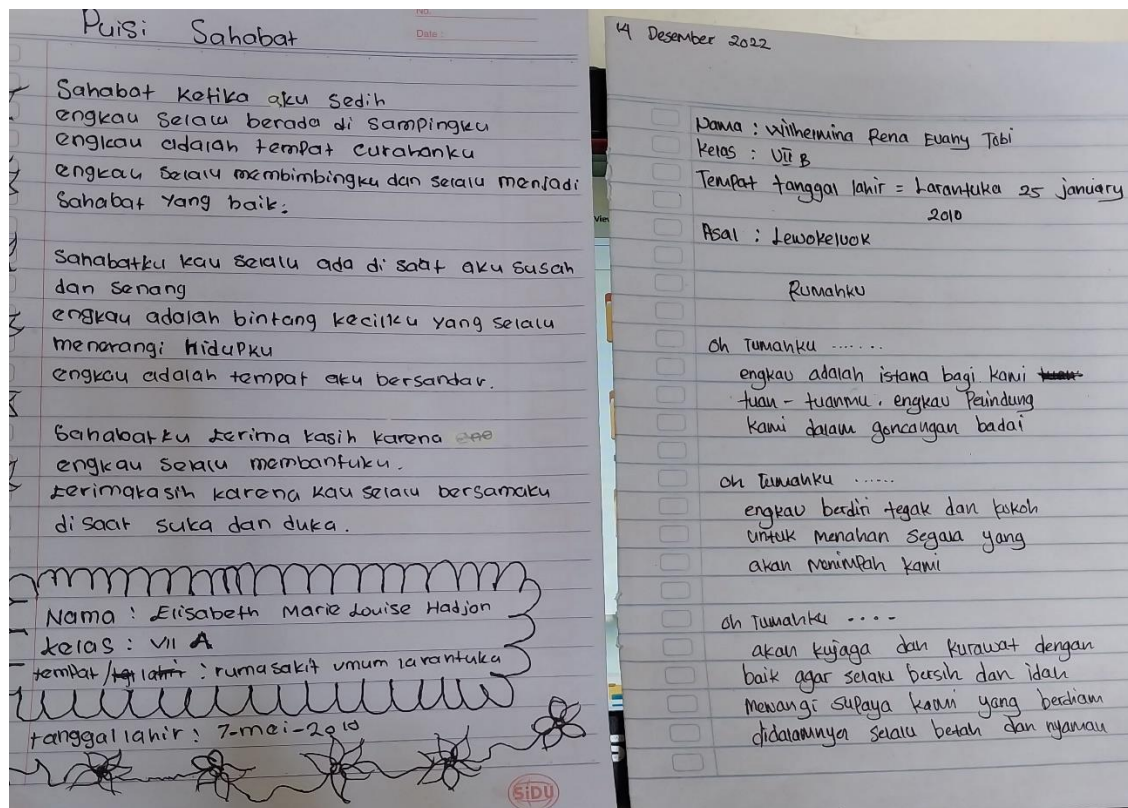 No.
Date :
Puisi Sahabat
Sahabat ketika aku sedih
engkau selalu berada di sampingku
engkau adalah tempat curahanku
engkau selalu membimbingku dan selalu menjadi
Sahabat yang baik.
Sahabatku kau selalu ada di saat aku susah
dan senang
engkau adalah bintang kecilku yang selalu
menerangi hidupku
engkau adalah tempat aku bersandar.
Sahabatku terima kasih karena
engkau selalu membantuku.
terimakasih karena kau selalu bersamaku
di saat suka dan duka.
Nama : Elisabeth Marie Louise Hadjon
kelas : VII A
tempat / lahir : rumasakit umum larantuka
tanggal lahir : 7-mei-2010
SiDU
14 Desember 2022
Nama : Wilhelmina Rena Evany Tobi
Kelas : VII B
Tempat tanggal lahir = Larantuka 25 january
2010
Asal : Lewokeluok
Rumahku
Oh rumahku .......
engkau adalah istana bagi kami
tuan - tuanmu. engkau Pelindung
kami dalam goncangan badai
oh rumahku ......
engkau berdiri tegak dan kokoh
untuk menahan segala yang
akan menimpah kami
oh rumahku ....
akan kujaga dan kurawat dengan
baik agar selalu bersih dan idah
mewangi supaya kami yang berdiam
didalamnya selalu betah dan nyaman